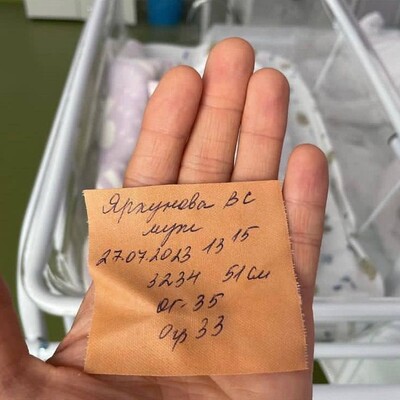 Ярхунова ВС
муж
27.07.2023 13 15
3234 51 см
ог-35
Огр 33